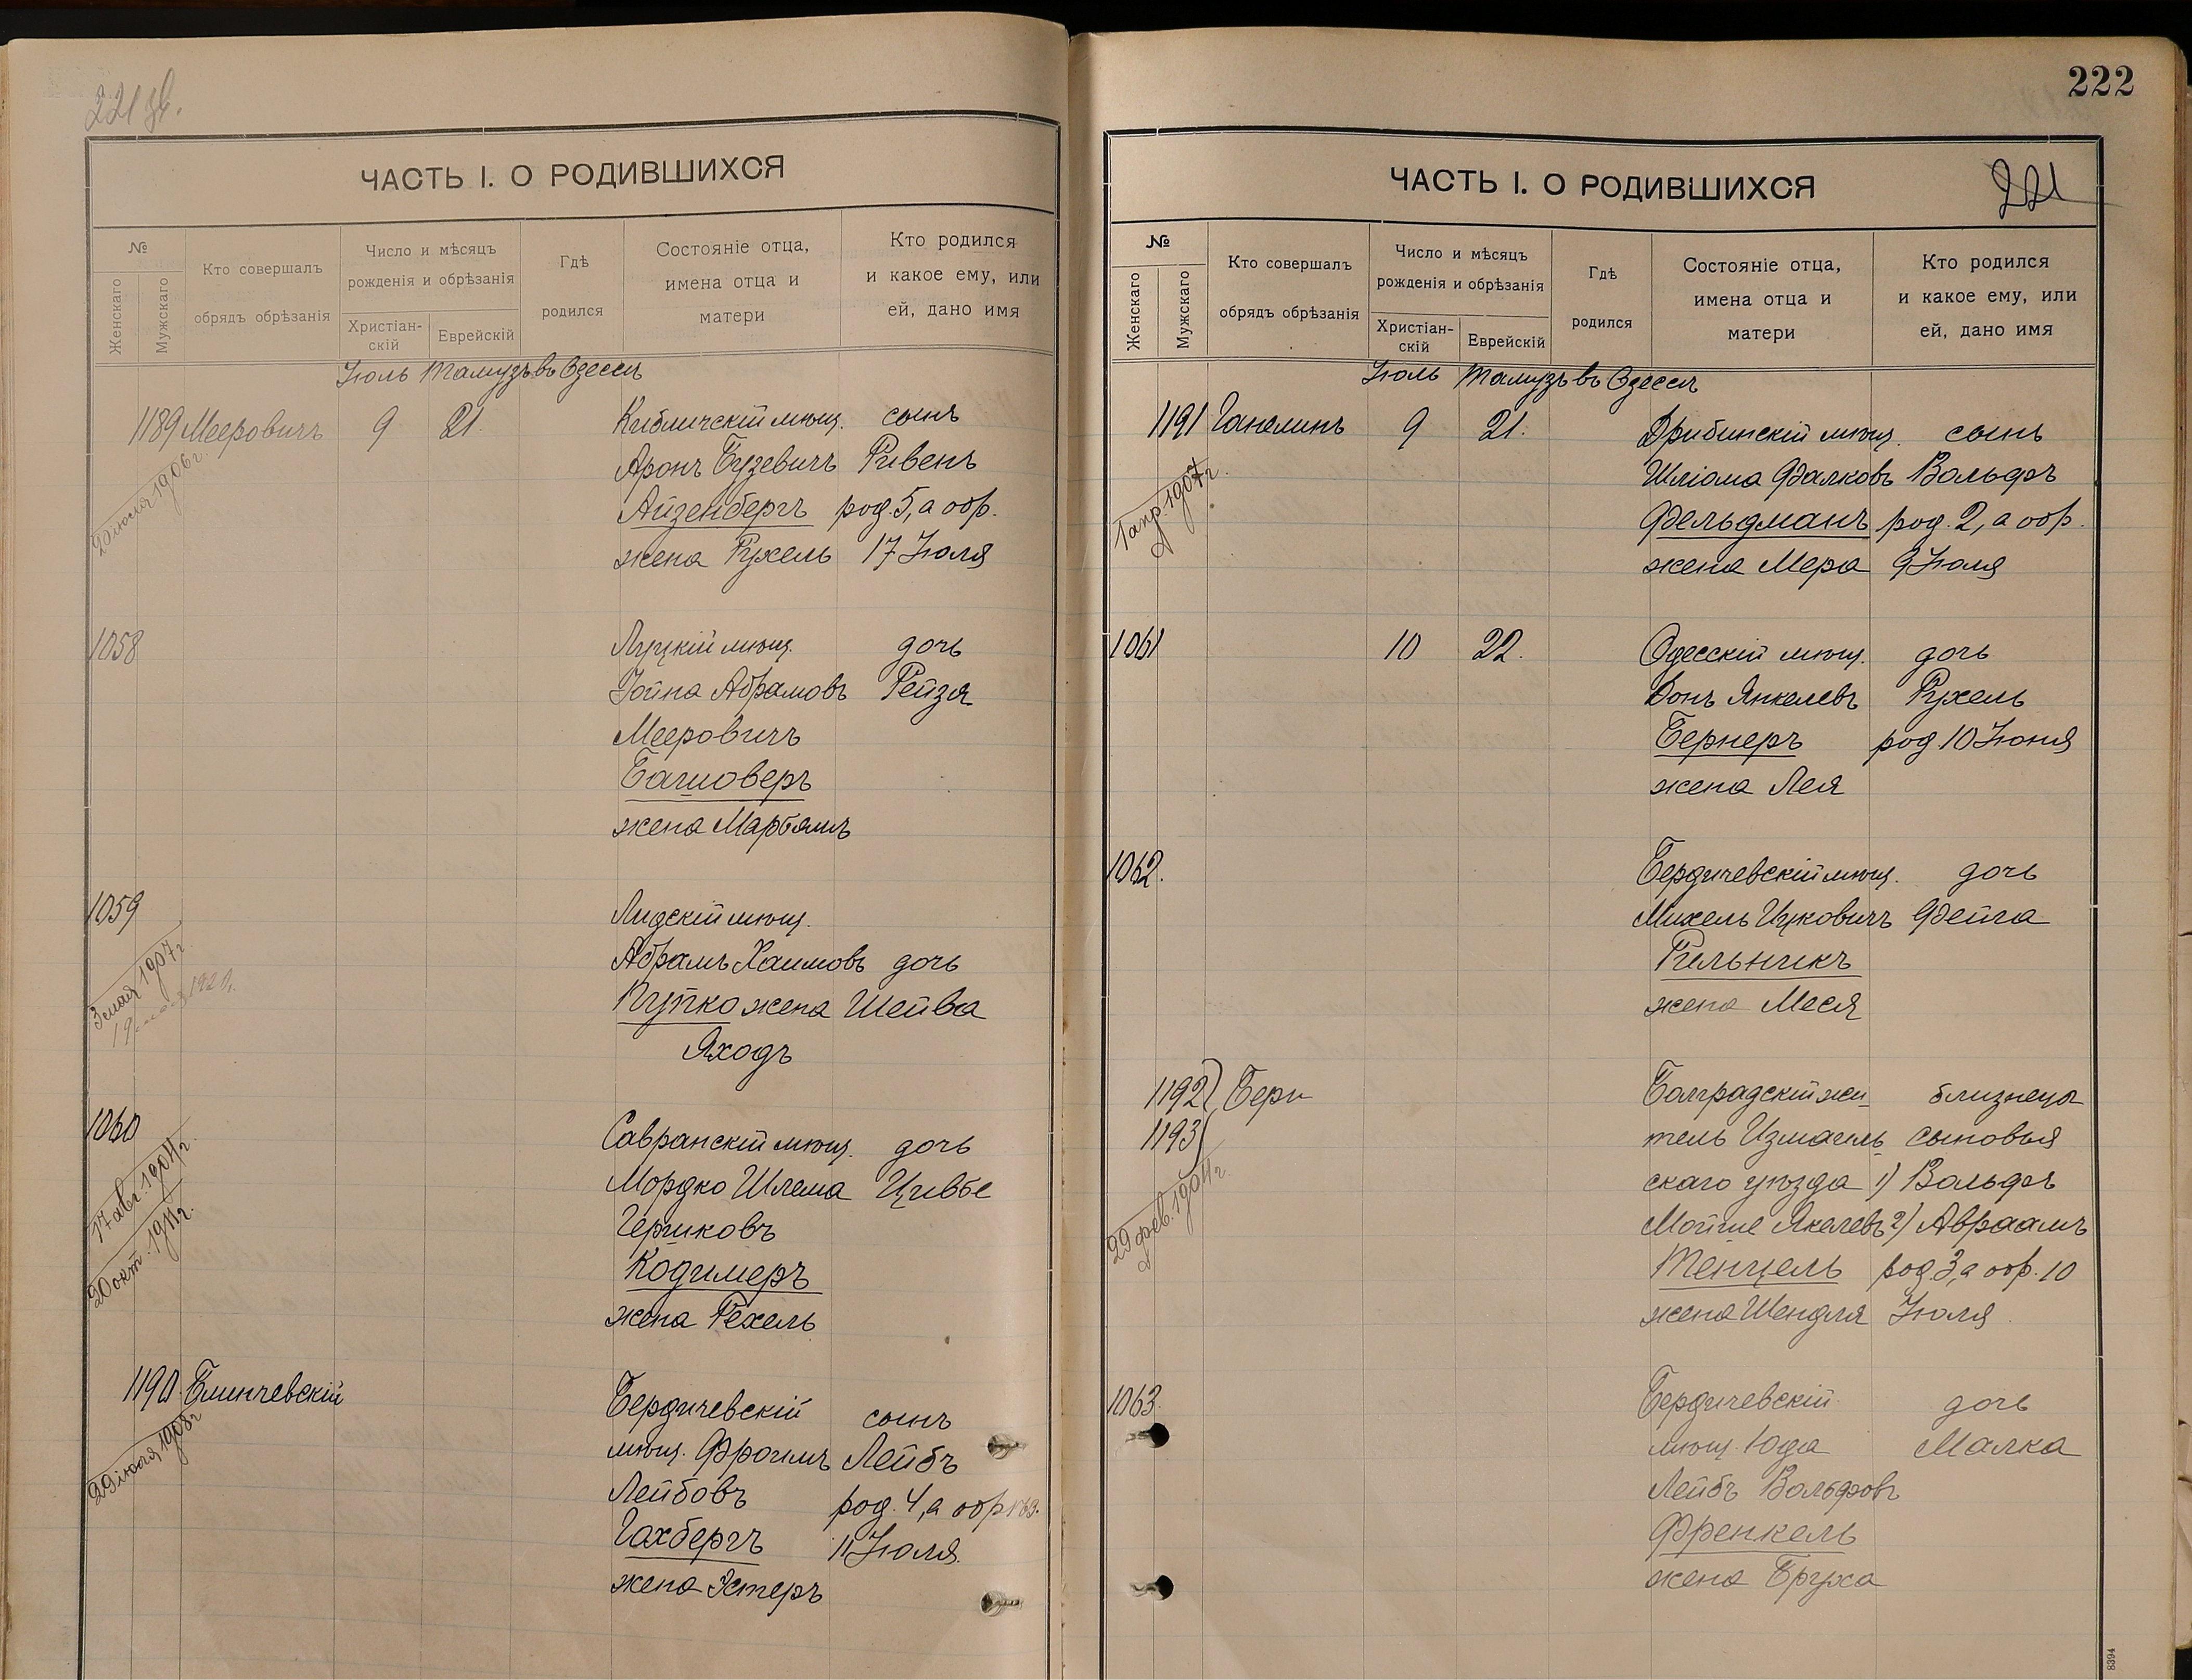 221 об.
ЧАСТЬ I. О РОДИВШИХСЯ
№
Женскаго
Мужскаго
Кто совершалъ
обрядъ обрѣзанія
Число и мѣсяцъ
рожденія и обрѣзанія
Христіан-
скій
Еврейскій
Гдѣ
родился
Состояніе отца,
имена отца и
матери
Кто родился
и какое ему, или
ей, дано имя
Іюль Тамузъ въ Одессѣ
1189 Мееровичъ 9 21. Кибличскій мѣщ. сынъ
Аронъ Бузевичъ Рувенъ
Айзенбергъ род. 5, а обр.
жена Рухель 17 Іюля
20 іюля 1906 г.
1058 Луцкій мѣщ. дочь
Іойна Абрамовъ Рейзя
Мееровичъ
Башоверъ
жена Марьямъ
1059 Лидскій мѣщ.
Абрамъ Хаимовъ дочь
Пупко жена Шейва
Яходъ
3 мая 1907 г.
1920 г.
1060 Савранскій мѣщ. дочь
Мордко Шлема Цивье
Гершковъ
Кодимеръ
жена Рехель
17 авг. 1904 г.
20 окт. 1911 г.
1190 Блинчевскій Бердичевскій сынъ
мѣщ. Фроимъ Лейбъ
Лейбовъ род. 4, а обр.
Гахбергъ 11 Іюля
жена Эстеръ
29 іюля 1908 г.
222
ЧАСТЬ I. О РОДИВШИХСЯ
221
№
Женскаго
Мужскаго
Кто совершалъ
обрядъ обрѣзанія
Число и мѣсяцъ
рожденія и обрѣзанія
Христіан-
скій
Еврейскій
Гдѣ
родился
Состояніе отца,
имена отца и
матери
Кто родился
и какое ему, или
ей, дано имя
Іюль Тамузъ въ Одессѣ
1191 Ганелинъ 9 21. Дрибинскій мѣщ. сынъ
Шліома Фалковъ Вольфъ
Фельдманъ род. 2, а обр.
жена Мера 9 Іюля
1 апр. 1907 г.
1061 10 22. Одесскій мѣщ. дочь
Донъ Янкелевъ Рухель
Бернеръ род. 10 Іюня
жена Лея
1062. Бердичевскій мѣщ. дочь
Михель Ицковичъ Фейга
Рильникъ
жена Меся
1192) Бери Болградскій жи- близнецы
1193) тель Измаиль- сыновья
скаго уѣзда 1) Вольфъ
Мойше 2) Авраамъ
Тенцель род. 3, а обр. 10
жена Шендля Іюля
29 фев. 1904 г.
1063. Бердичевскій дочь
мѣщ. Юда Малка
Лейбъ Вольфовъ
Френкель
жена Бруха
8394